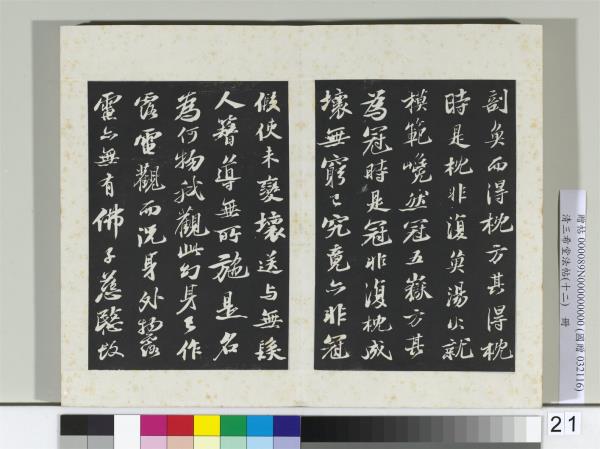 剖魚而得枕方其得枕
時是枕非復魚湯火就
模範巉然冠五嶽方其
為冠時是冠非復枕成
壞無窮已究竟亦非冠
假使未變壞送与無髮
人簪導無所施是名
為何物我觀此幻身已作
露電觀而況身外物露
電亦無有佛子慈愍故
贈帖 000089N000000000 (國贈 032116)
清三希堂法帖(十二) 冊
21